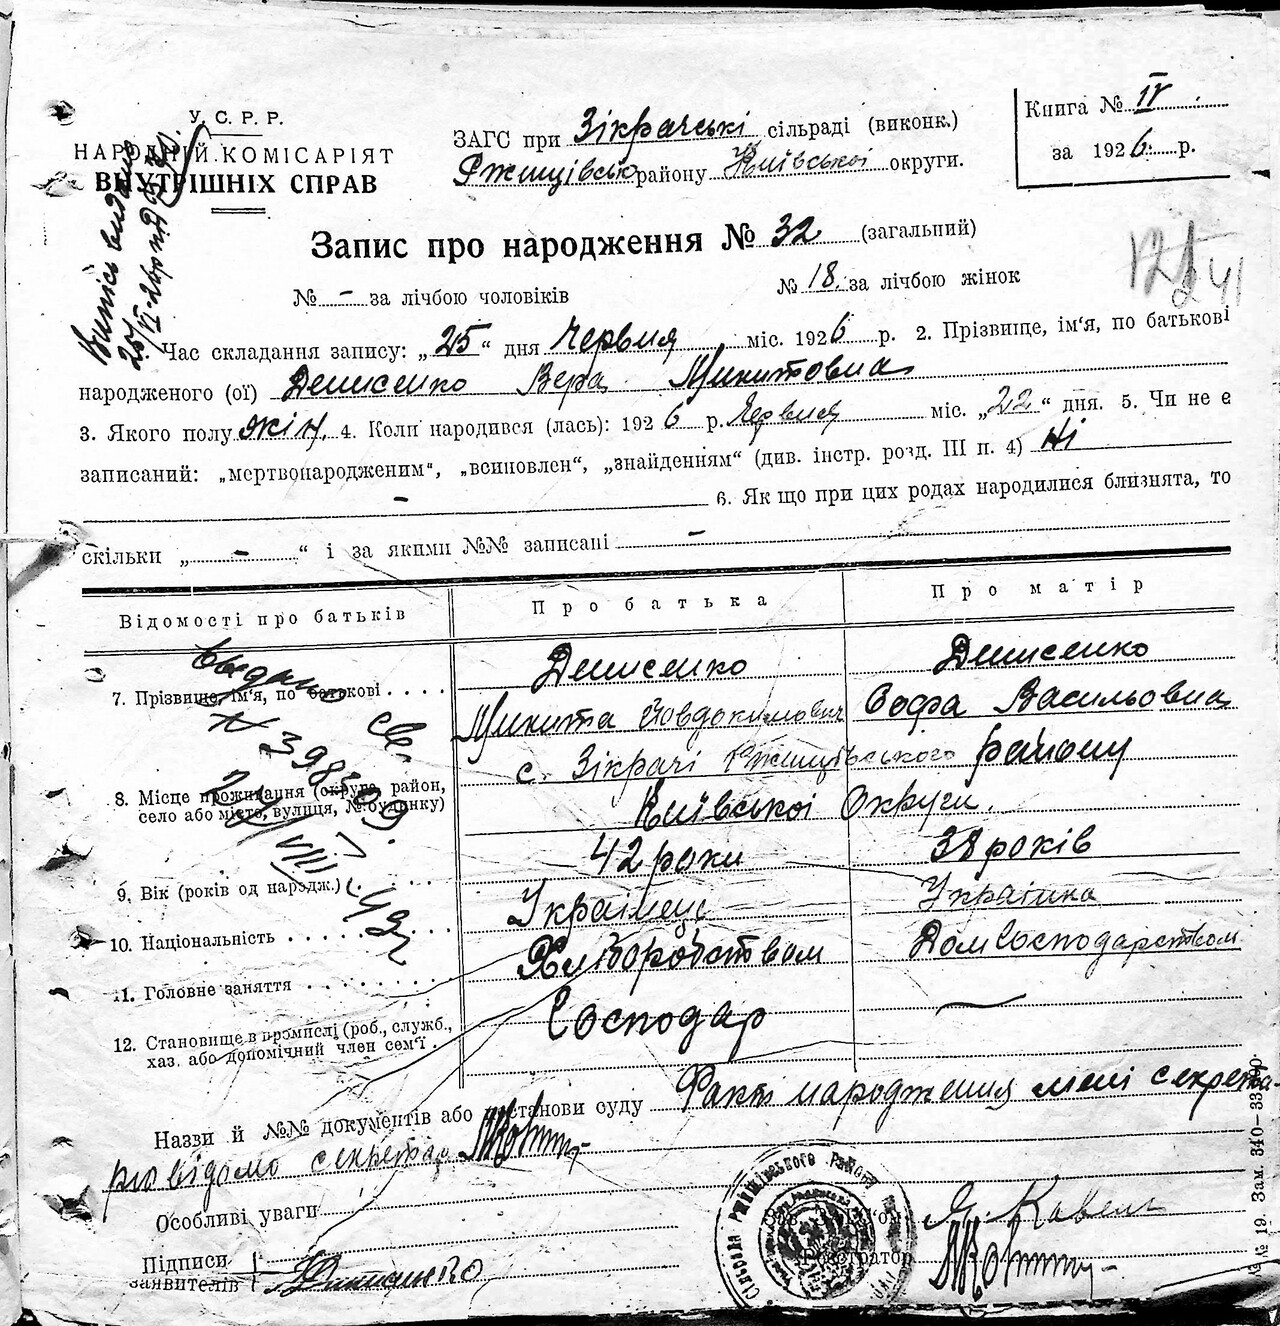 У.С.Р.Р.
НАРОДНІЙ КОМІСАРІЯТ
ВНУТРІШНІХ СПРАВ
ЗАГС при Зікрачські сільраді (виконк.)
Ржищівсько району Київської округи.
Книга № IV
за 1926 р.
Запис про народження № 32 (загальний)
№ - за лічбою чоловіків
№ 18 за лічбою жінок
Час складання запису: „25“ дня Червня міс. 1926 р. 2. Прізвище, ім'я, по батькові
народженого (ої) Денисенко Вера Микитовна
3. Якого полу жін. 4. Коли народився (лась): 1926 р. Червня міс. „22“ дня. 5. Чи не є
записаний: „мертвонародженим“, „всиновлен“, „знайденням“ (див. інстр. розд. III п. 4) Ні
- 6. Як що при цих родах народилися близнята, то
скільки „ - “ і за якими №№ записані -
Відомості про батьків
Про батька
Про матір
7. Прізвище, ім'я, по батькові
Денисенко
Микита Йовдокимович
Денисенко
Софа Васильовна
8. Місце проживання (округа, район,
село або місто, вулиця, № будинку)
с. Зікрачі Ржищівського району
Київської Округи.
9. Вік (років од народж.)
42 роки
38 років
10. Національність
Українець
Українка
11. Головне заняття
Хліборобством
Домгосподарством
12. Становище в промислі (роб., служб.,
хаз. або допомічний член сем'ї
Господар
Назви й №№ документів або постанови суду Факт народження мені секрета-
рю відомо секретар
Особливі уваги
Підписи
заявителів Денисенко
Реєстратор
№ 19. Зам. 340—33000